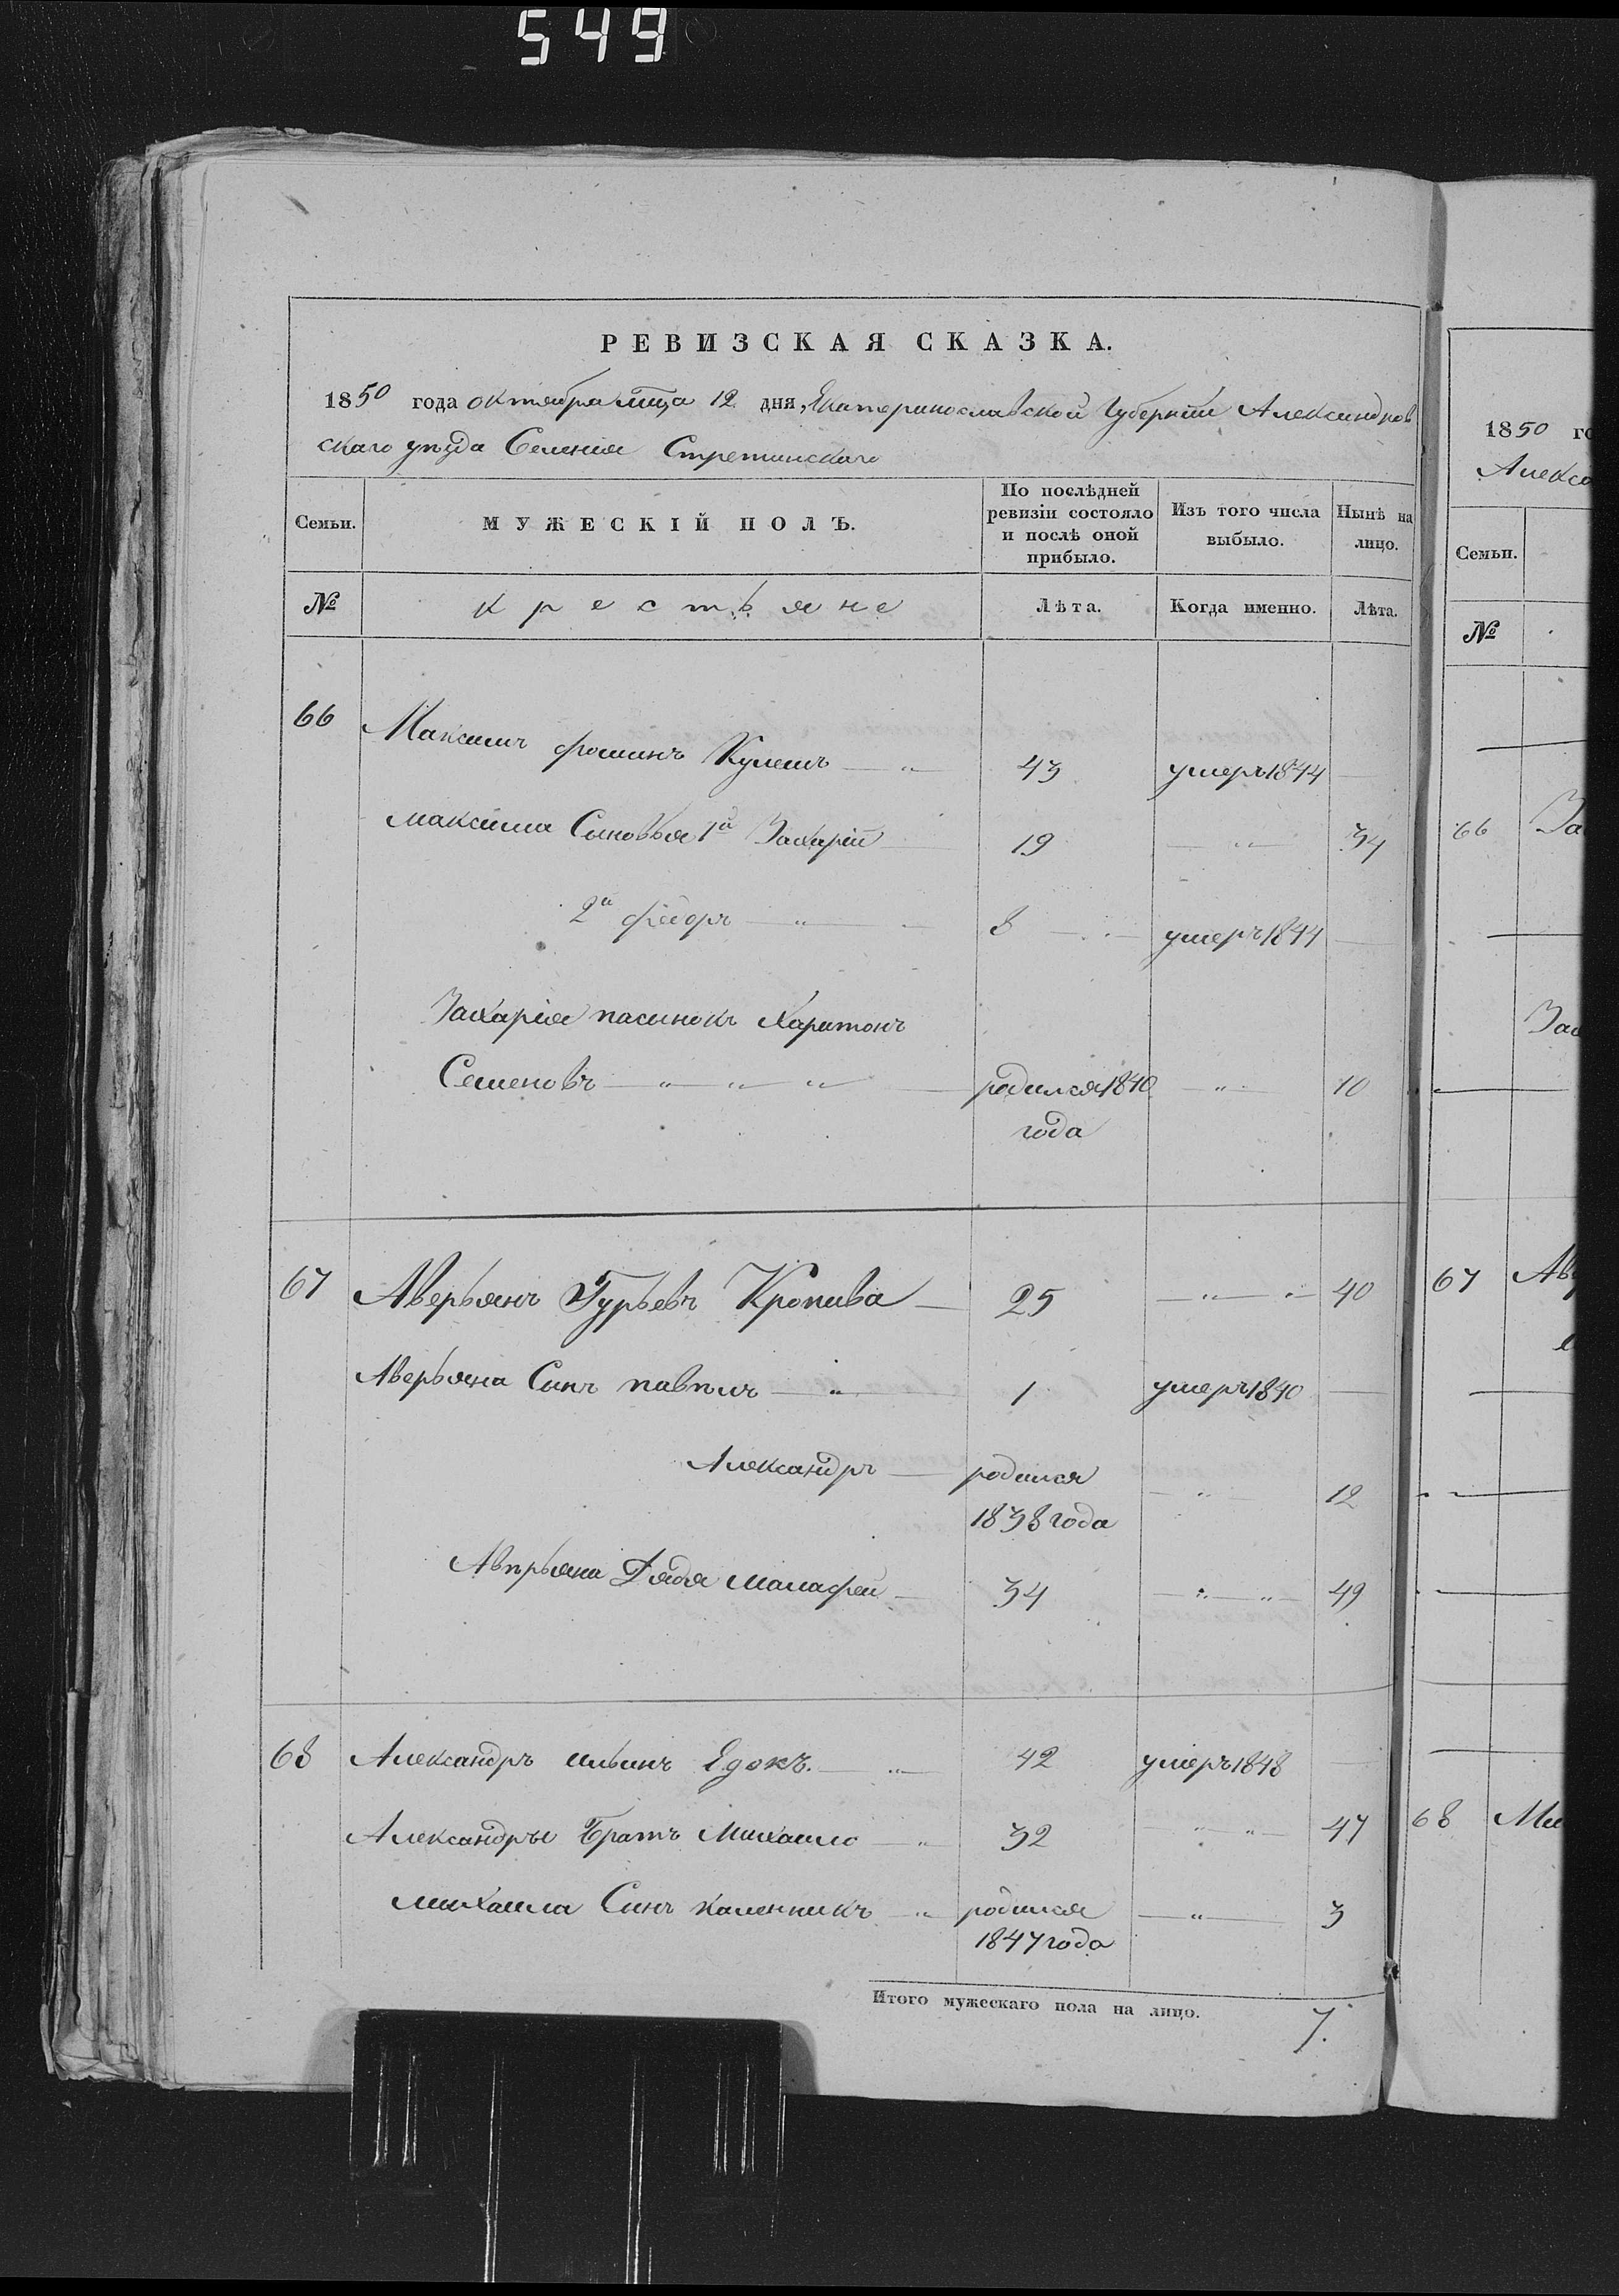 549
РЕВИЗСКАЯ СКАЗКА.
1850 года октября мца 12 дня, Екатеринославской Губернiи Александров
скаго уѣзда Селенiя Стретинскаго
Семьи.
МУЖЕСКIЙ ПОЛЪ.
По послѣдней ревизiи состояло и послѣ оной прибыло.
Изъ того числа выбыло.
Нынѣ на лицо.
№
крестьяне
Лѣта.
Когда именно.
Лѣта.
66 Максимъ фоминъ Кулешъ 43 умеръ 1844
максима Сыновья 1й Захарiй 19 34
2й фiодоръ 8 умеръ 1844
Захарiя пасынокъ Харитонъ
Семеновъ родился 1840 10
года
67 Аверьянъ Гурьевъ Кропива 25 40
Аверьяна Сынъ павѣлъ 1 умеръ 1840
Александръ родился 12
1838 года
Авѣрьяна Дядя малафей 34 49
68 Александръ ильинъ Едокъ. 42 умеръ 1848
Александры Братъ Михаило 32 47
михаила Сынъ каленникъ родился 3
1847 года
Итого мужескаго пола на лицо. 7.
1850 го
Алекса
Семьи.
№
66 За
Зах
67 Ав
68 Ми